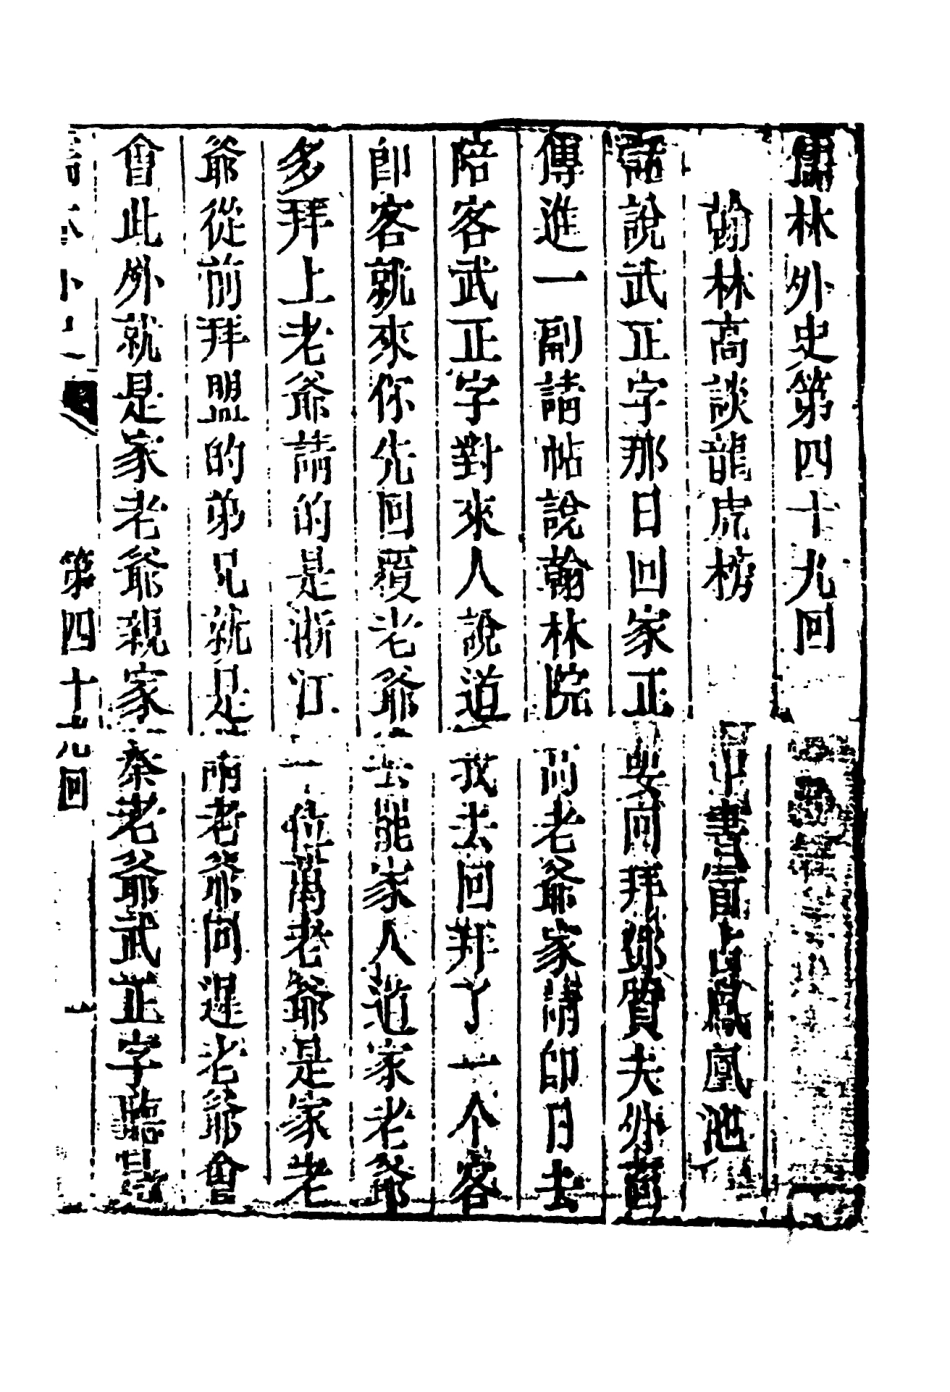 儒林外史第四十九回
翰林高談龍虎榜 中書冒占鳳凰池
話說武正字那日回家正要回拜鄧質夫外面
傳進一副請帖說翰林院高老爺家請即日去
陪客武正字對來人說道我去回拜了一个客
即客就來你先回覆老爺去罷家人道家老爺
多拜上老爺請的是浙江一位萬老爺是家老
爺從前拜盟的弟兄就是 兩老爺同遲老爺會
會此外就是家老爺親家秦老爺武正字聽見
第四十九回 一